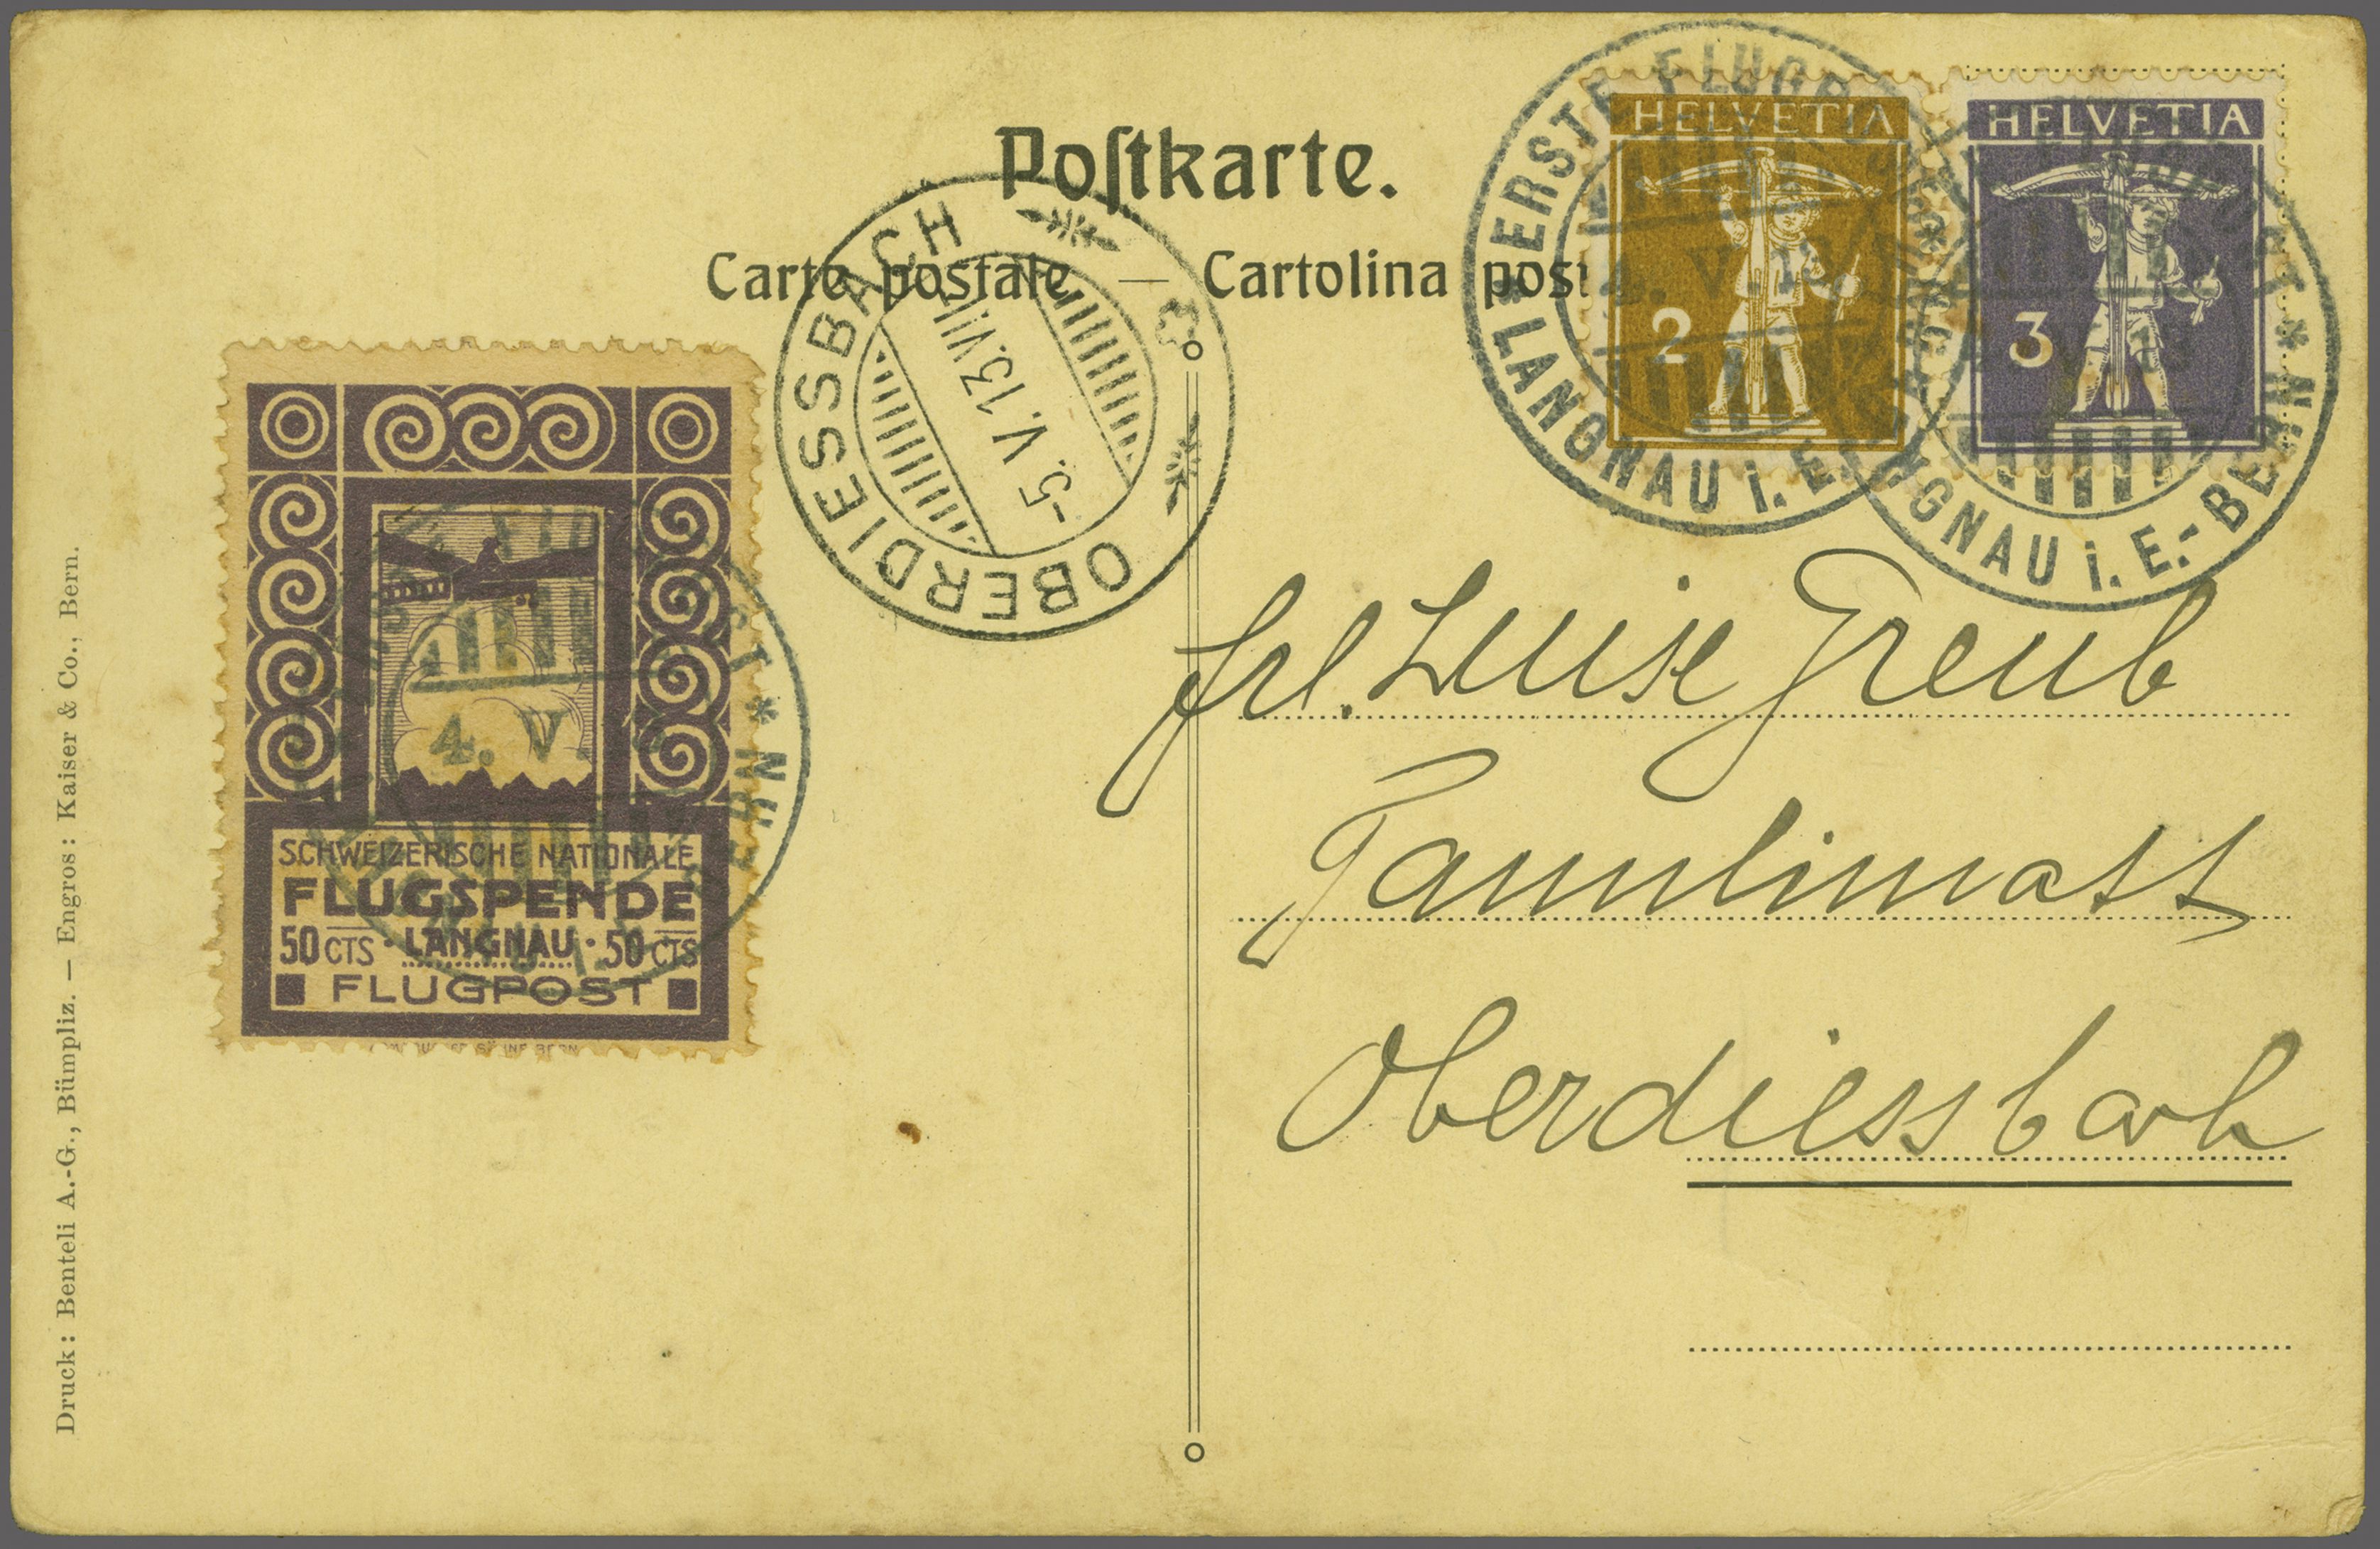 Postkarte.
Carte postale — Cartolina post
HELVETIA
2
HELVETIA
3
ERSTE FLUGPOST * LANGNAU i. E.-BERN *
4. V. 13
GNAU i. E.-BERN *
OBERDIESSBACH
-5. V. 13. VII
4. V.
SCHWEIZERISCHE NATIONALE
FLUGSPENDE
50 CTS · LANGNAU · 50 CTS
FLUGPOST
Frl. Luise Greub
Tannlimatt
Oberdiessbach
Druck: Benteli A.-G., Bümpliz. — Engros: Kaiser & Co., Bern.